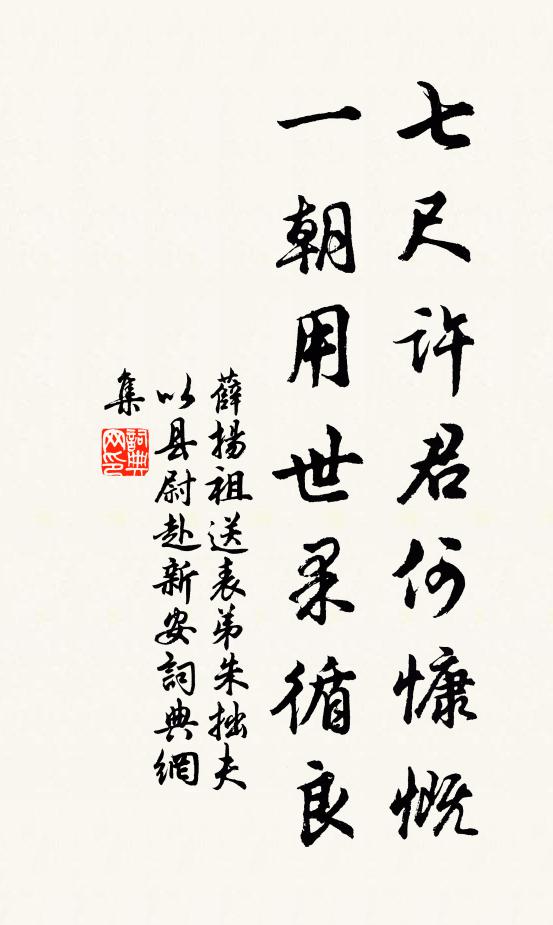 七尺許君何慷慨
一朝用世果循良
薛揚祖送表弟朱拙夫
以县尉赴新安詞典網
集
詞典
网印